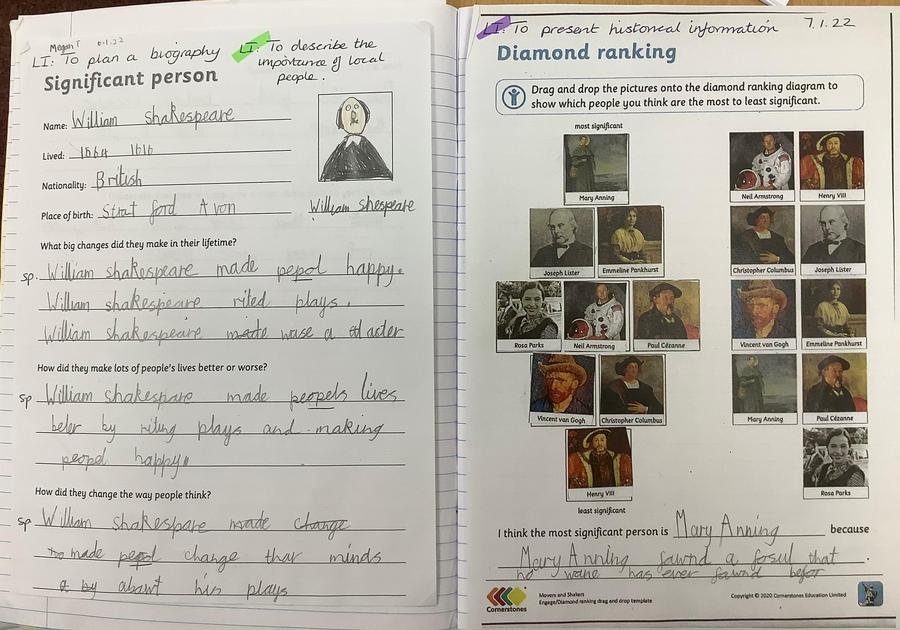 Megan T 6.1.22
LI: To plan a biography
LI: To describe the
importance of local
people.
Significant person
Name: William Shakespeare
Lived: 1664 1616
Nationality: British
Place of birth: Strat ford Avon
William shespeare
What big changes did they make in their lifetime?
sp. William shakespeare made pepol happy.
William shakespeare rited plays.
William shakespeare made wase a acter
How did they make lots of people's lives better or worse?
sp William shakespare made peopels lives
beter by riting plays and making
peopel happy.
How did they change the way people think?
sp William shakespare made change
made pepol change thar minds
a by abawt his plays
LI: To present historical information 7.1.22
Diamond ranking
Drag and drop the pictures onto the diamond ranking diagram to
show which people you think are the most to least significant.
most significant
Mary Anning
Neil Armstrong Henry VIII
Joseph Lister Emmeline Pankhurst
Christopher Columbus Joseph Lister
Rosa Parks Neil Armstrong Paul Cézanne
Vincent van Gogh Emmeline Pankhurst
Vincent van Gogh Christopher Columbus
Mary Anning Paul Cézanne
Henry VIII
Rosa Parks
least significant
I think the most significant person is Mary Anning because
Mary Anning fawnd a fosul that
no wane has ever fawnd befor
Cornerstones
Movers and Shakers
Engage/Diamond ranking drag and drop template
Copyright © 2020 Cornerstones Education Limited